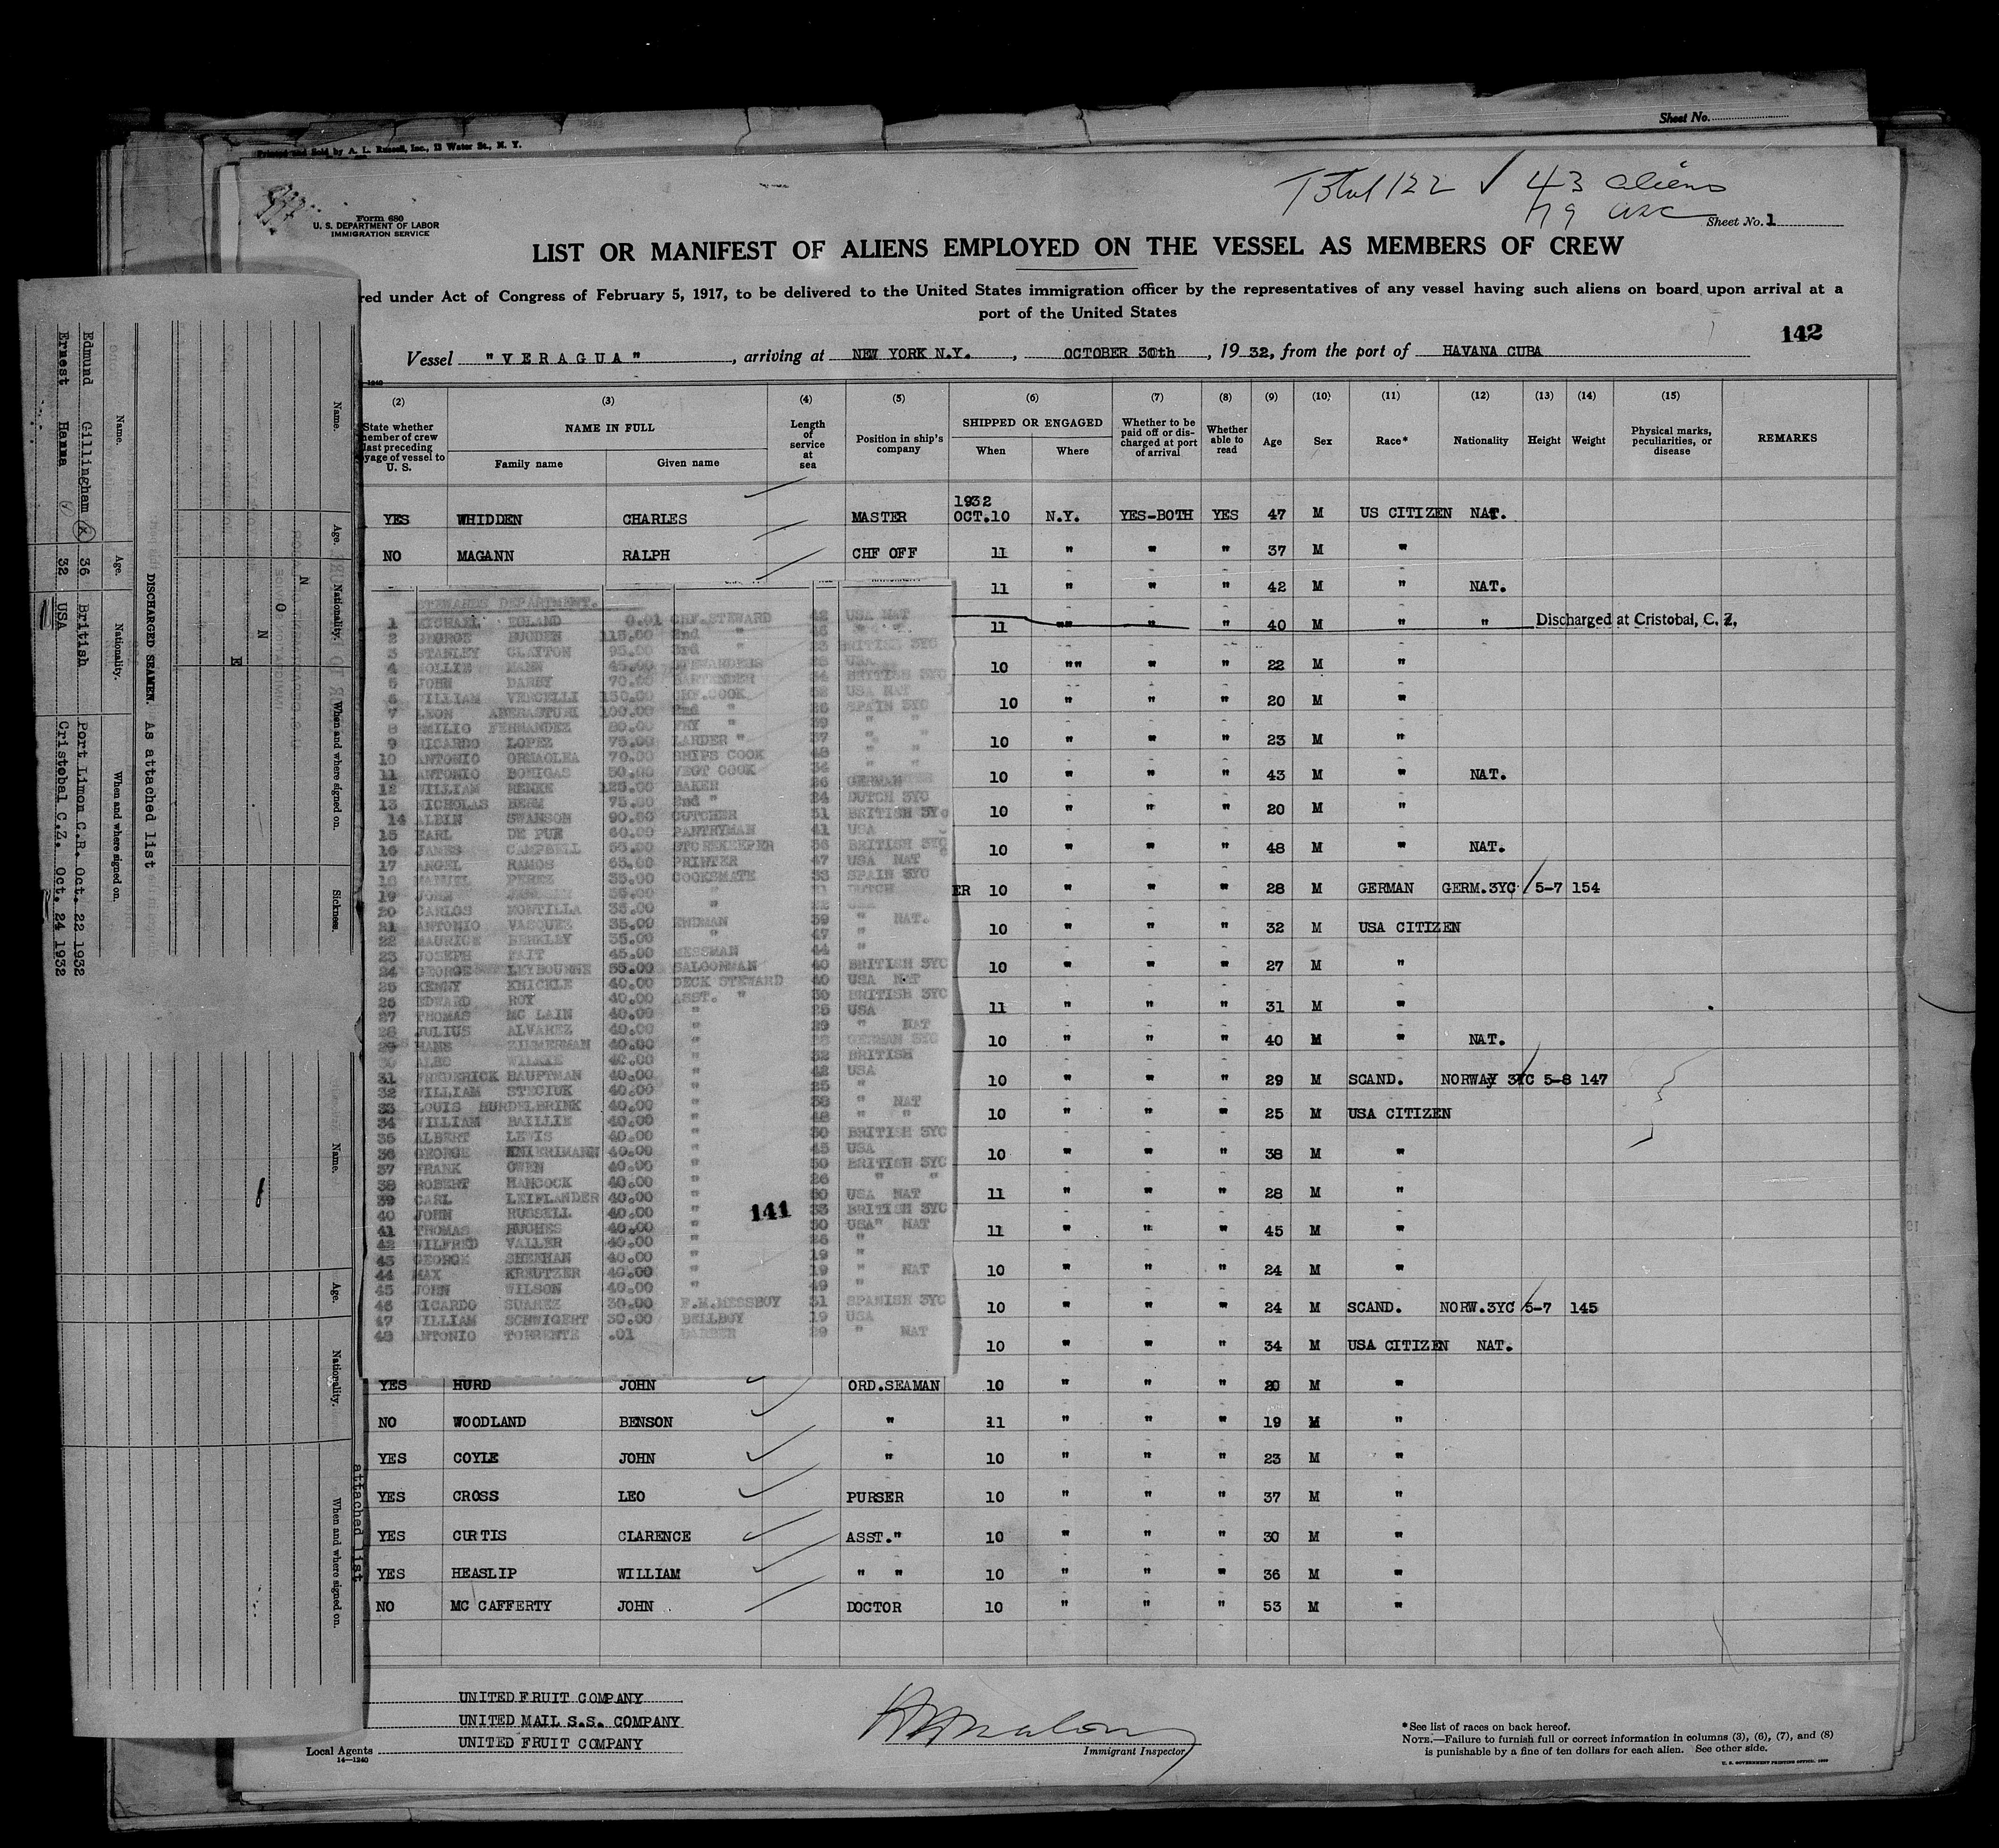 Sheet No.
Printed and Sold by A. L. Russell, Inc., 13 Water St., N. Y.
Total 122 ✓ 43 aliens
79 usc
Form 680
U. S. DEPARTMENT OF LABOR
IMMIGRATION SERVICE
Sheet No. 1
LIST OR MANIFEST OF ALIENS EMPLOYED ON THE VESSEL AS MEMBERS OF CREW
red under Act of Congress of February 5, 1917, to be delivered to the United States immigration officer by the representatives of any vessel having such aliens on board upon arrival at a
port of the United States
142
Vessel "VERAGUA", arriving at NEW YORK N.Y., OCTOBER 30th, 1932, from the port of HAVANA CUBA
(2) (3) (4) (5) (6) (7) (8) (9) (10) (11) (12) (13) (14) (15)
State whether member of crew last preceding voyage of vessel to U. S.
NAME IN FULL
Family name Given name
Length of service at sea
Position in ship's company
SHIPPED OR ENGAGED
When Where
Whether to be paid off or discharged at port of arrival
Whether able to read
Age
Sex
Race*
Nationality
Height
Weight
Physical marks, peculiarities, or disease
REMARKS
1932
YES WHIDDEN CHARLES MASTER OCT.10 N.Y. YES-BOTH YES 47 M US CITIZEN NAT.
NO MAGANN RALPH CHF OFF 11 " " " 37 M "
11 " " " 42 M " NAT.
11 "" " " 40 M " " Discharged at Cristobal, C. Z,
10 "" " " 22 M "
10 " " " 20 M "
10 " " " 23 M "
10 " " " 43 M " NAT.
10 " " " 20 M "
10 " " " 48 M " NAT.
ER 10 " " " 28 M GERMAN GERM.3YC 5-7 154
10 " " " 32 M USA CITIZEN
10 " " " 27 M "
11 " " " 31 M "
10 " " " 40 M " NAT.
10 " " " 29 M SCAND. NORWAY 3YC 5-8 147
10 " " " 25 M USA CITIZEN
10 " " " 38 M "
11 " " " 28 M "
11 " " " 45 M "
10 " " " 24 M "
10 " " " 24 M SCAND. NORW.3YC 5-7 145
10 " " " 34 M USA CITIZEN NAT.
YES HURD JOHN ORD.SEAMAN 10 " " " 20 M "
NO WOODLAND BENSON " 11 " " " 19 M "
YES COYLE JOHN " 10 " " " 23 M "
YES CROSS LEO PURSER 10 " " " 37 M "
YES CURTIS CLARENCE ASST." 10 " " " 30 M "
YES HEASLIP WILLIAM " " 10 " " " 36 M "
NO MC CAFFERTY JOHN DOCTOR 10 " " " 53 M "
STEWARDS DEPARTMENT.
1 MICHAEL BOLAND 0.01 CHF.STEWARD 42 USA NAT
2 GEORGE 115.00 2nd "
3 STANLEY CLAYTON 95.00 3rd " 23 BRITISH 3YC
4 MOLLIE MANN 45.00 STEWARDESS USA
5 JOHN DARBY 70.00 BARTENDER 34 BRITISH 3YC
6 WILLIAM VERCELLI 150.00 CHF.COOK 52 USA NAT
7 LEON ABERASTURI 100.00 2nd " SPAIN 3YC
8 EMILIO FERNANDEZ 80.00 FRY " 39 " "
9 RICARDO LOPEZ 75.00 LARDER " 37 " "
10 ANTONIO ORMAOLEA 70.00 SHIPS COOK 48 " "
11 ANTONIO BOHIGAS 50.00 VEGT COOK 34 " "
12 WILLIAM RENKE 125.00 BAKER 26 GERMAN
13 NICHOLAS 75.00 2nd " 24 DUTCH 3YC
14 ALBIN SWANSON 90.00 BUTCHER 51 BRITISH 3YC
15 EARL DE PUE 60.00 PANTRYMAN 41 USA
16 JAMES CAMPBELL 55.00 STOREKEEPER 36 BRITISH 3YC
17 ANGEL RAMOS 65.00 PRINTER 47 USA NAT
18 MANUEL PEREZ 35.00 COOKSMATE 33 SPAIN 3YC
19 JOHN 35.00 " DUTCH
20 CARLOS MONTILLA 35.00 " 22 USA
21 ANTONIO VASQUEZ 35.00 ENDMAN 39 " NAT.
22 MAURICE BERKLEY 35.00 " 47 "
23 JOSEPH TAIT 45.00 MESSMAN 44 "
24 GEORGE LEYBOURNE 55.00 SALOONMAN 40 BRITISH 3YC
25 KENNY KNICKLE 40.00 DECK STEWARD 40 USA NAT
26 EDWARD ROY 40.00 ASST. " 30 BRITISH 3YC
27 THOMAS MC LAIN 40.00 " 25 USA
28 JULIUS ALVAREZ 40.00 " 29 " NAT
29 HANS ZIMMERMAN 40.00 " 28 GERMAN 3YC
30 ALEC WILKIE 40.00 " 32 BRITISH
31 FREDERICK HAUPTMAN 40.00 " 42 USA
32 WILLIAM STECIUK 40.00 " 25 "
33 LOUIS HURDELBRINK 40.00 " 38 " NAT
34 WILLIAM BAILLIE 40.00 " 48 " "
35 ALBERT LEWIS 40.00 " 30 BRITISH 3YC
36 GEORGE KNIERIMANN 40.00 " 45 USA
37 FRANK OWEN 40.00 " 50 BRITISH 3YC
38 ROBERT HANCOCK 40.00 " 26 " "
39 CARL LEIFLANDER 40.00 " 50 USA NAT
40 JOHN RUSSELL 40.00 " 33 BRITISH 3YC
41 THOMAS HUGHES 40.00 " 30 USA" NAT
42 WILFRED VALLER 40.00 " 26 "
43 GEORGE SHEEHAN 40.00 " 19 "
44 MAX KREUTZER 40.00 " 19 " NAT
45 JOHN WILSON 40.00 " 49 "
46 RICARDO SUAREZ 30.00 F.M.MESSBOY 31 SPANISH 3YC
47 WILLIAM SCHWIGERT 30.00 BELLBOY 19 USA
48 ANTONIO TORRENTE .01 BARBER 29 " NAT
141
DISCHARGED SEAMEN. As attached list
Name. Age. Nationality. When and where signed on.
Edmund Gillingham 36 British Port Limon C.R. Oct. 22 1932
Ernest Hanna 32 USA Cristobal C.Z. Oct. 24 1932
Name. Age. Nationality. When and where signed on. Sickness.
N O N E
Name. Age. Nationality. When and where signed on.
attached list
UNITED FRUIT COMPANY
UNITED MAIL S.S. COMPANY
Local Agents UNITED FRUIT COMPANY
14—1240
Immigrant Inspector
*See list of races on back hereof.
NOTE.—Failure to furnish full or correct information in columns (3), (6), (7), and (8)
is punishable by a fine of ten dollars for each alien. See other side.
U. S. GOVERNMENT PRINTING OFFICE